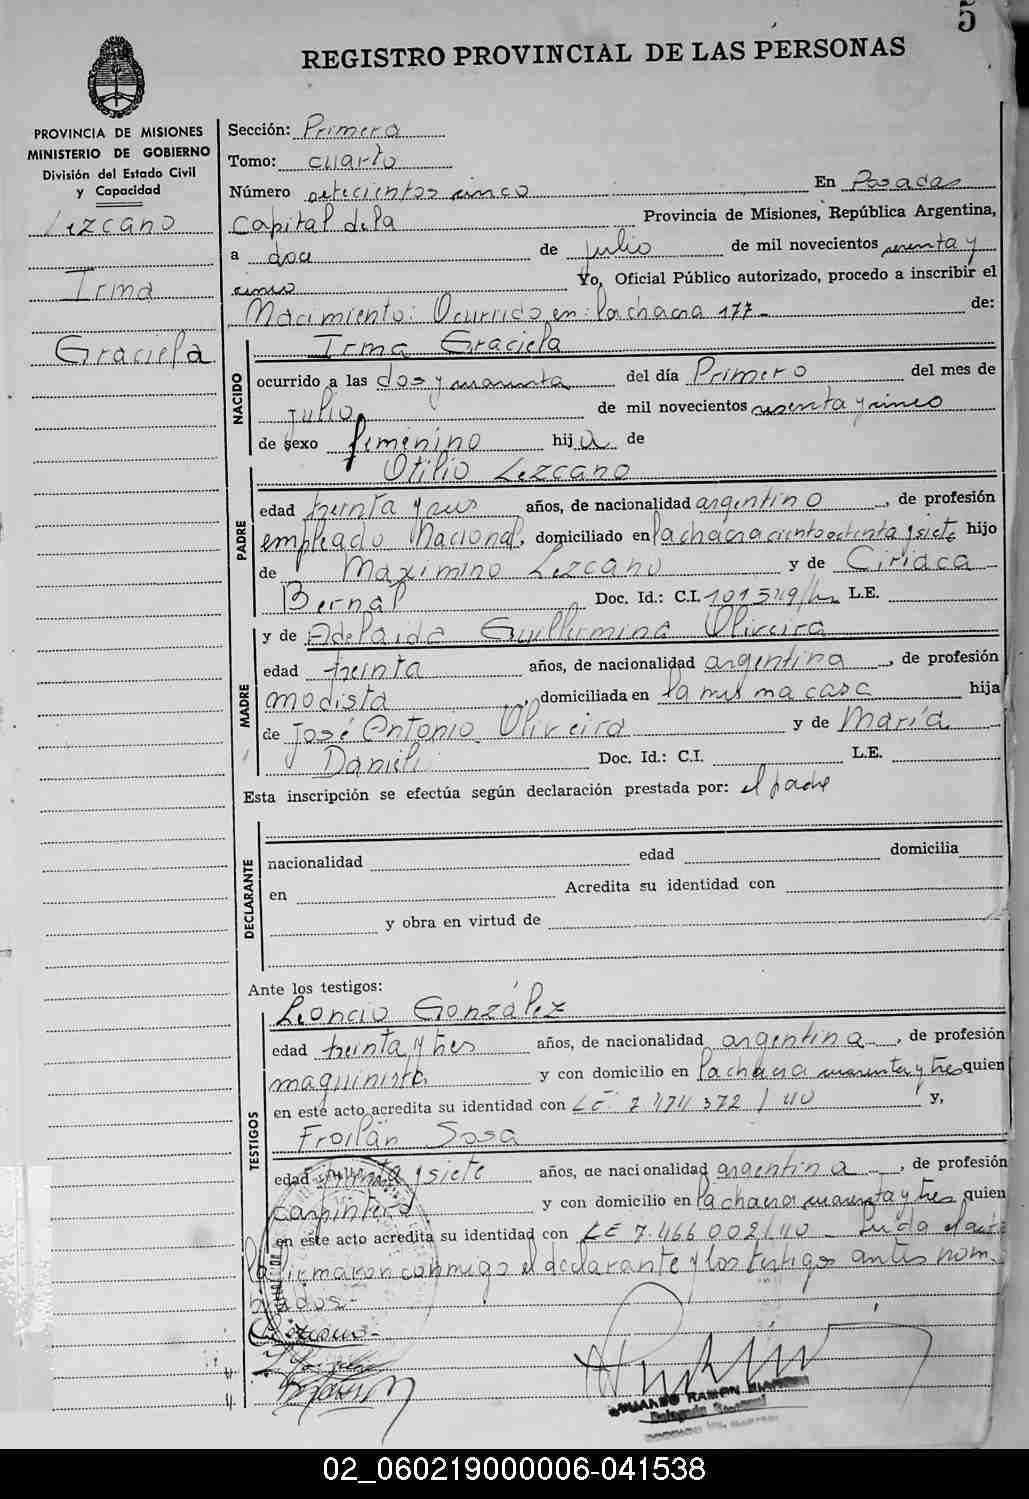 5
REGISTRO PROVINCIAL DE LAS PERSONAS
PROVINCIA DE MISIONES
MINISTERIO DE GOBIERNO
División del Estado Civil
y Capacidad
Lezcano
Irma
Graciela
Sección: Primera
Tomo: cuarto
Número setecientos cinco En Posadas
Capital de la Provincia de Misiones, República Argentina,
a doce de julio de mil novecientos sesenta y
cinco Yo, Oficial Público autorizado, procedo a inscribir el
Nacimiento: Ocurrido en: la chacra 177 de:
NACIDO
Irma Graciela
ocurrido a las dos y cuarenta del día Primero del mes de
julio de mil novecientos sesenta y cinco
de sexo femenino hij a de
PADRE
Otilio Lezcano
edad treinta y seis años, de nacionalidad argentino, de profesión
empleado Nacional, domiciliado en la chacra ciento setenta y siete hijo
de Maximino Lezcano y de Ciriaca
Bernal Doc. Id.: C.I. L.E.
MADRE
y de Adelaida Guillermina Oliveira
edad treinta años, de nacionalidad argentina, de profesión
modista, domiciliada en la misma casa hija
de José Antonio Oliveira y de María
Danieli Doc. Id.: C.I. L.E.
Esta inscripción se efectúa según declaración prestada por: el padre
DECLARANTE
nacionalidad edad domicilia
en Acredita su identidad con
y obra en virtud de
Ante los testigos:
TESTIGOS
Leoncio González
edad treinta y tres años, de nacionalidad argentina, de profesión
maquinista y con domicilio en la chacra cuarenta y tres quien
en este acto acredita su identidad con LE 7.471.372 / 40 y,
Froilán Sosa
edad y siete años, de nacionalidad argentina, de profesión
carpintero y con domicilio en la chacra cuarenta y tres quien
en este acto acredita su identidad con LE 7.466.002/40 Leida el acta
la firmaron conmigo el declarante y los testigos antes nom
brados.-
RAMON
02_060219000006-041538